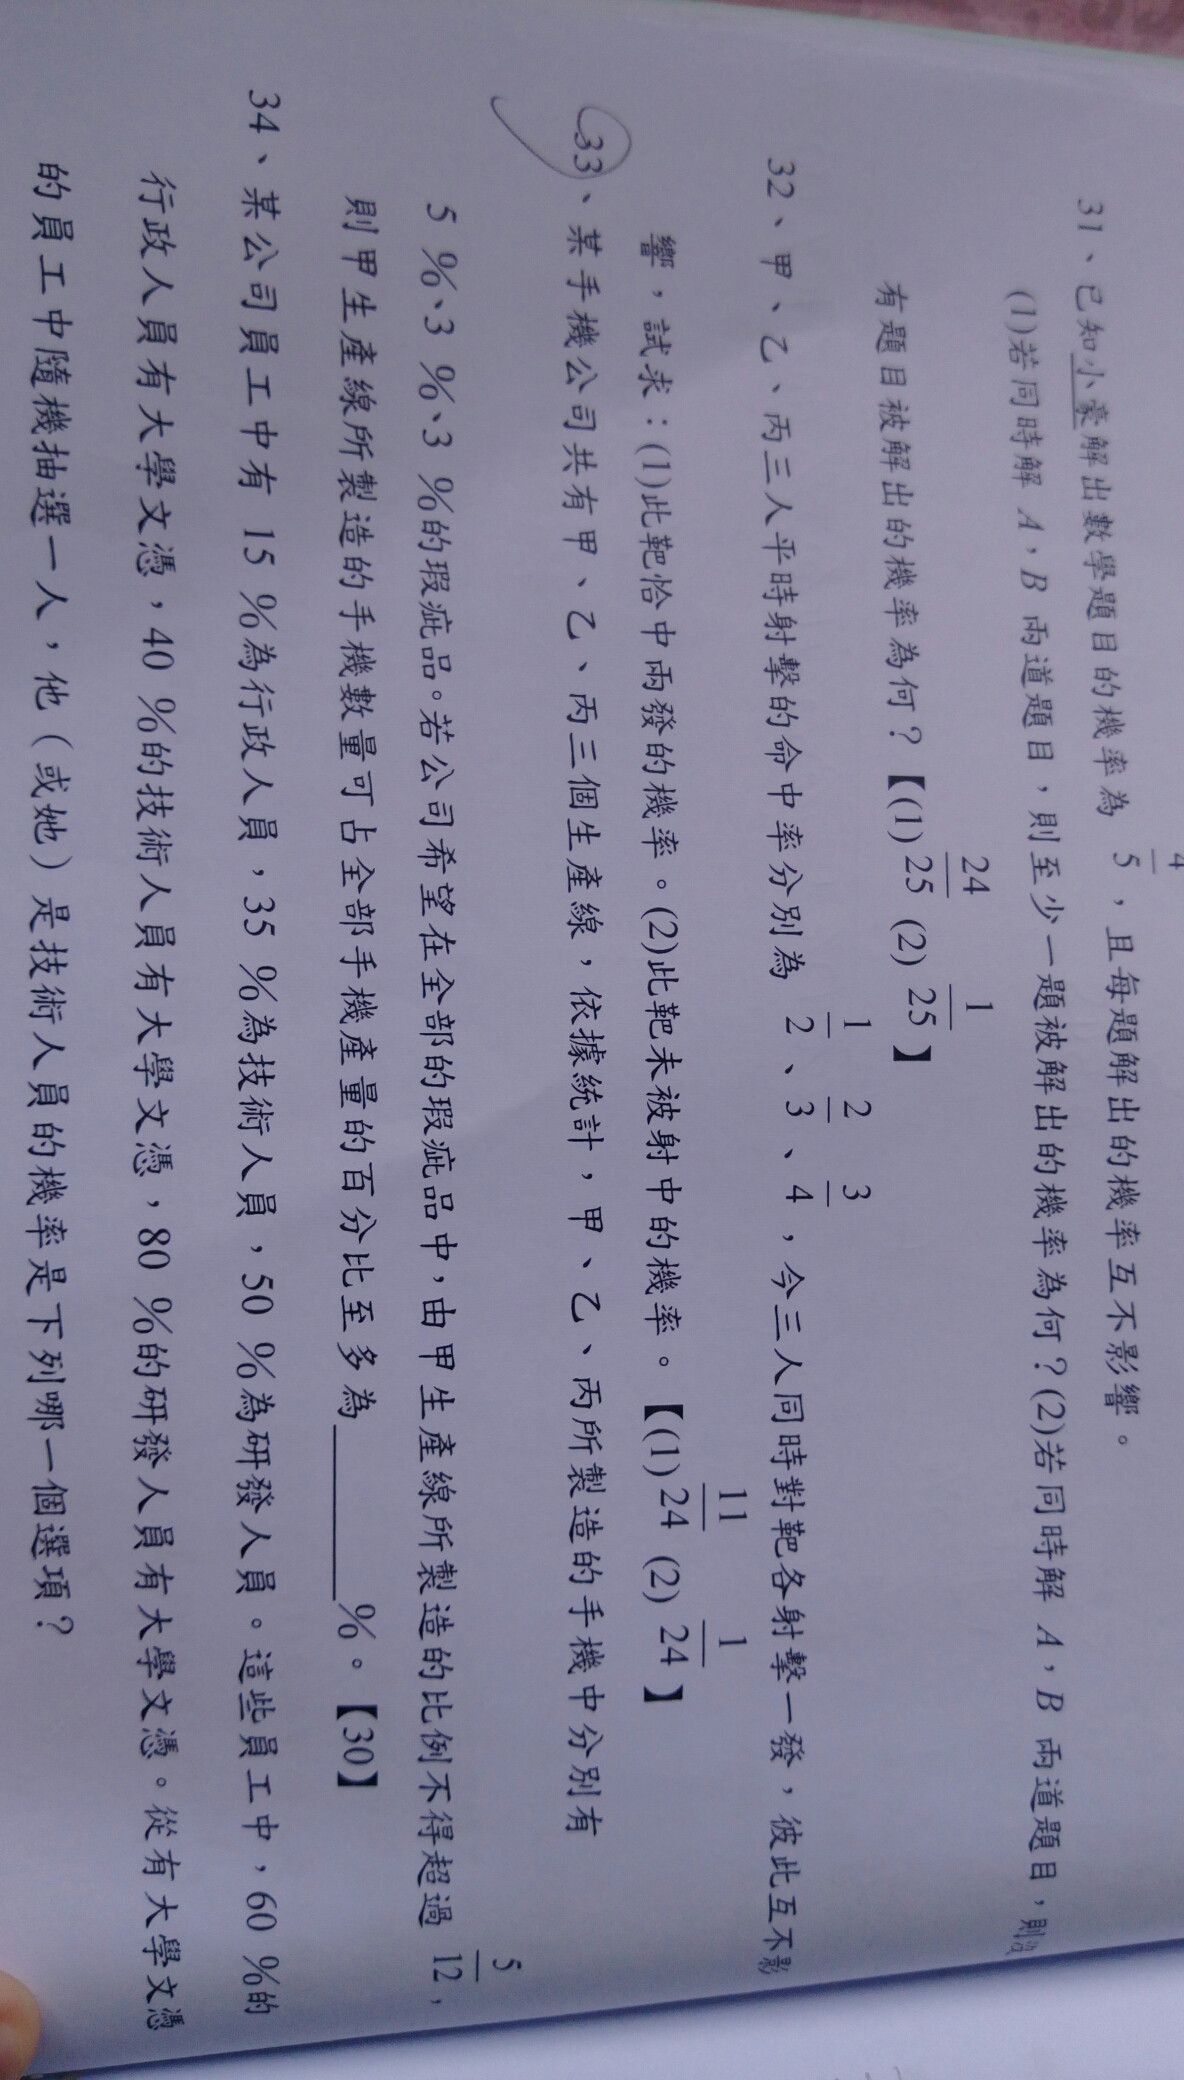 31、已知小豪解出數學題目的機率為 4/5 ，且每題解出的機率互不影響。
(1)若同時解 A，B 兩道題目，則至少一題被解出的機率為何？(2)若同時解 A，B 兩道題目，則沒
有題目被解出的機率為何？【(1) 24/25 (2) 1/25 】
32、甲、乙、丙三人平時射擊的命中率分別為 1/2 、 2/3 、 3/4 ，今三人同時對靶各射擊一發，彼此互不影
響，試求：(1)此靶恰中兩發的機率。(2)此靶未被射中的機率。【(1) 11/24 (2) 1/24 】
33、某手機公司共有甲、乙、丙三個生產線，依據統計，甲、乙、丙所製造的手機中分別有
5 %、3 %、3 %的瑕疵品。若公司希望在全部的瑕疵品中，由甲生產線所製造的比例不得超過 5/12 ，
則甲生產線所製造的手機數量可占全部手機產量的百分比至多為______%。【30】
34、某公司員工中有 15 %為行政人員，35 %為技術人員，50 %為研發人員。這些員工中，60 %的
行政人員有大學文憑，40 %的技術人員有大學文憑，80 %的研發人員有大學文憑。從有大學文憑
的員工中隨機抽選一人，他（或她）是技術人員的機率是下列哪一個選項？